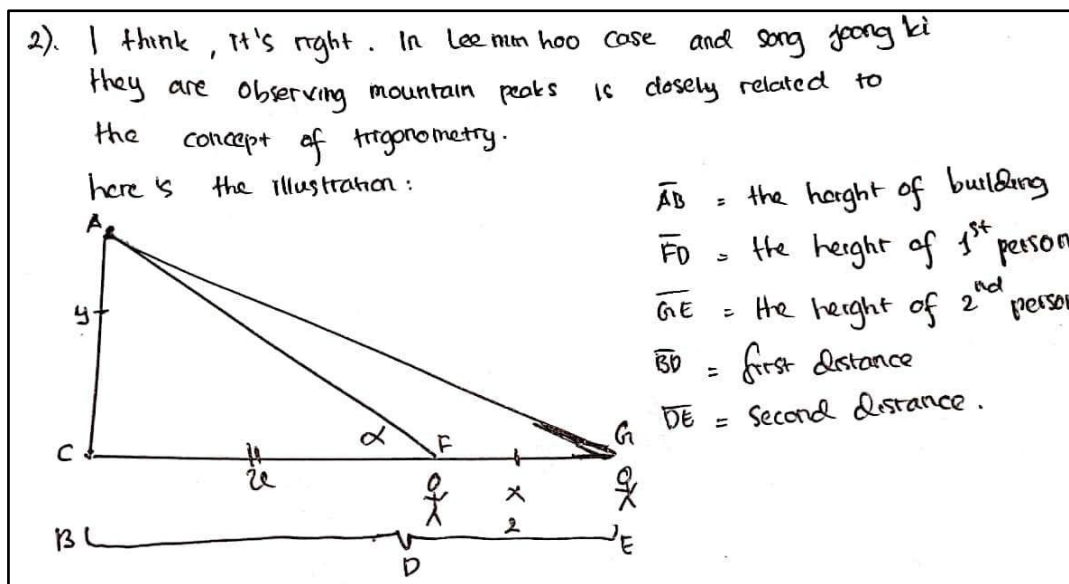 2). I think, it's right. In Lee min hoo case and song joong ki
they are observing mountain peaks is closely related to
the concept of trigonometry.
here's the illustration:
A
y
C
α
F
x
2
G
B
D
E
AB = the height of building
FD = the height of 1st person
GE = the height of 2nd person
BD = first distance
DE = second distance.